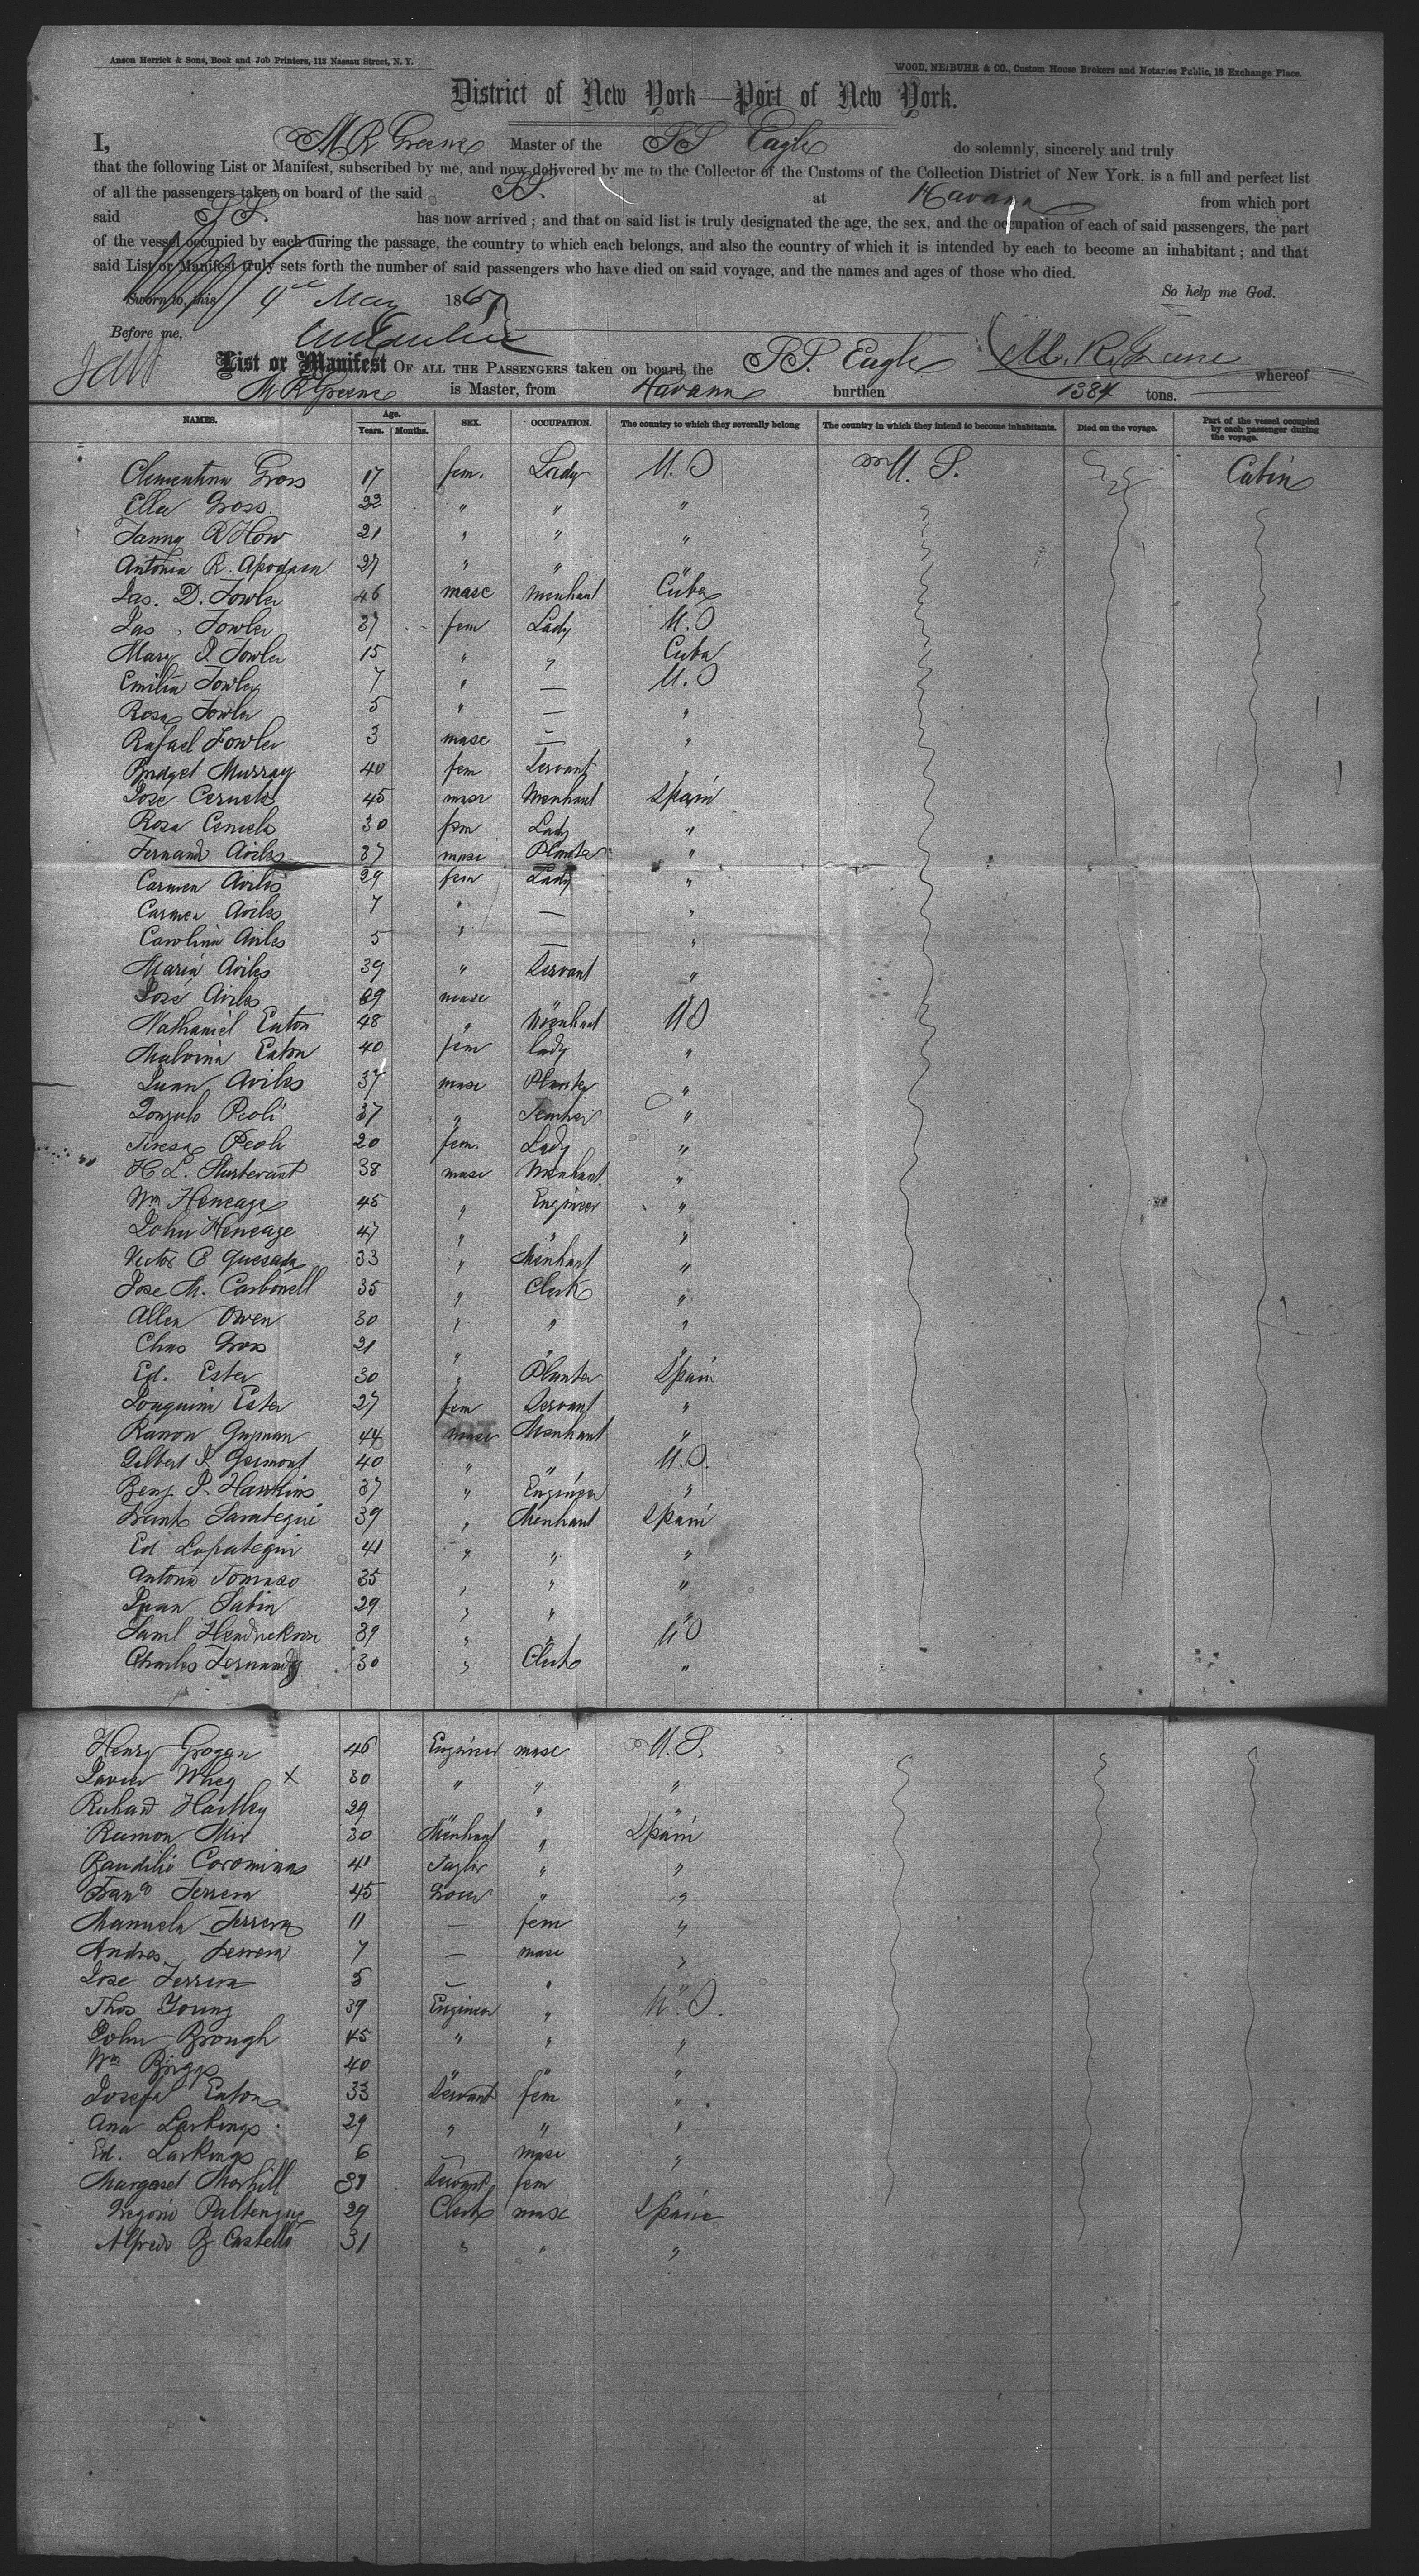 Anson Herrick & Sons, Book and Job Printers, 113 Nassau Street, N. Y.
WOOD, NEIBUHR & CO., Custom House Brokers and Notaries Public, 18 Exchange Place.
District of New York—Port of New York.
I, M R Greene Master of the SS Eagle do solemnly, sincerely and truly
that the following List or Manifest, subscribed by me, and now delivered by me to the Collector of the Customs of the Collection District of New York, is a full and perfect list
of all the passengers taken on board of the said SS. at Havana from which port
said SS. has now arrived; and that on said list is truly designated the age, the sex, and the occupation of each of said passengers, the part
of the vessel occupied by each during the passage, the country to which each belongs, and also the country of which it is intended by each to become an inhabitant; and that
said List or Manifest truly sets forth the number of said passengers who have died on said voyage, and the names and ages of those who died.
So help me God.
Sworn to, this May 1867
Before me,
M. R. Greene
List or Manifest OF ALL THE PASSENGERS taken on board the SS. Eagle whereof
M R Greene is Master, from Havana burthen 1384 tons.
NAMES. Age. Years. Months. SEX. OCCUPATION. The country to which they severally belong The country in which they intend to become inhabitants. Died on the voyage. Part of the vessel occupied by each passenger during the voyage.
Clementina Gross 17 fem. Lady U. S U. S. Cabin
Ella Gross 22 " " "
Fanny R How 21 " " "
Antonia R. Apodaca 27 " " "
Jas. D. Fowler 46 masc Merchant Cuba
Jas. Fowler 37 fem Lady U. S
Mary I Fowler 15 " " Cuba
Emilia Fowler 7 " — U. S
Rosa Fowler 5 " — "
Rafael Fowler 3 masc — "
Bridget Murray 40 fem Servant "
Jose Cernels 45 masc Merchant Spain
Rosa Cernels 30 fem Lady "
Fernand Aviles 37 masc Planter "
Carmen Aviles 29 fem Lady "
Carmen Aviles 7 " — "
Carolina Aviles 5 " — "
Maria Aviles 39 " Servant "
José Aviles 29 masc " "
Nathaniel Eaton 48 " Merchant U S
Malvina Eaton 40 fem Lady "
Juan Aviles 37 masc Planter "
Gonzalo Peoli 37 " Teacher "
Teresa Peoli 20 fem. Lady "
H L. Sturtevant 38 masc Merchant "
Wm Heneage 45 " Engineer "
John Heneage 47 " " "
Victor C Quesada 33 " Merchant "
Jose M. Carbonell 35 " Clerk "
Allen Owen 30 " " "
Chas Gross 21 " " "
Ed. Ester 30 " Planter Spain
Joaquina Ester 27 fem Servant "
Ramon Guzman 44 masc Merchant "
Gilbert S. Germont 40 " " U. S.
Benj. P. Hawkins 37 " Engineer "
Frank Sarategui 39 " Merchant Spain
Ed Lopategui 41 " " "
Antonio Tomaso 35 " " "
Juan Sabin 29 " " "
Saml Hendrickson 39 " " U S
Charles Fernandz 30 " Clerk "
Henry Grogan 46 Engineer masc U. S.
Javier Whey x 30 " " "
Richard Hartley 29 " " "
Ramon Mir 30 Merchant " Spain
Baudilio Corominas 41 Taylor " "
Franco Ferrera 45 Grocer " "
Manuela Ferrera 11 — fem "
Andres Ferrera 7 — masc "
Jose Ferrera 5 — " "
Thos Young 39 Engineer " U. S.
John Brough 45 " " "
Wm Briggs 40 " " "
Josefa Eaton 33 Servant fem "
Ana Larkings 29 " " "
Ed. Larkings 6 — masc "
Margaret Morhill 31 Servant fem
Gregorio Paltengue 29 Clerk masc Spain
Alfredo B Castello 31 " " "